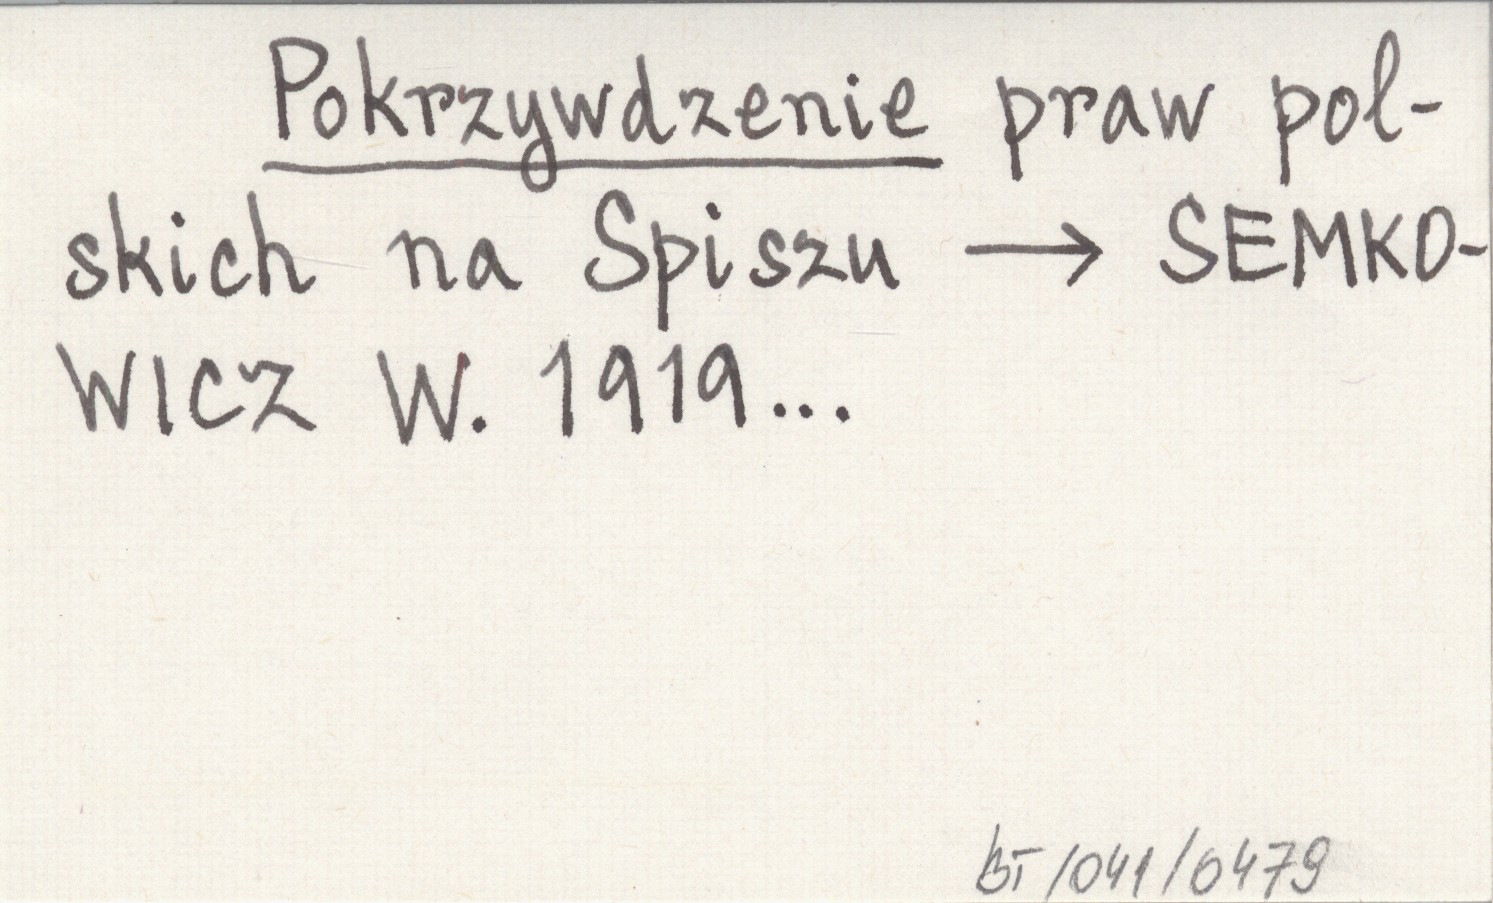 Pokrzywdzenie praw pol-
skich na Spiszu → SEMKO-
WICZ W. 1919...
BT/041/0479